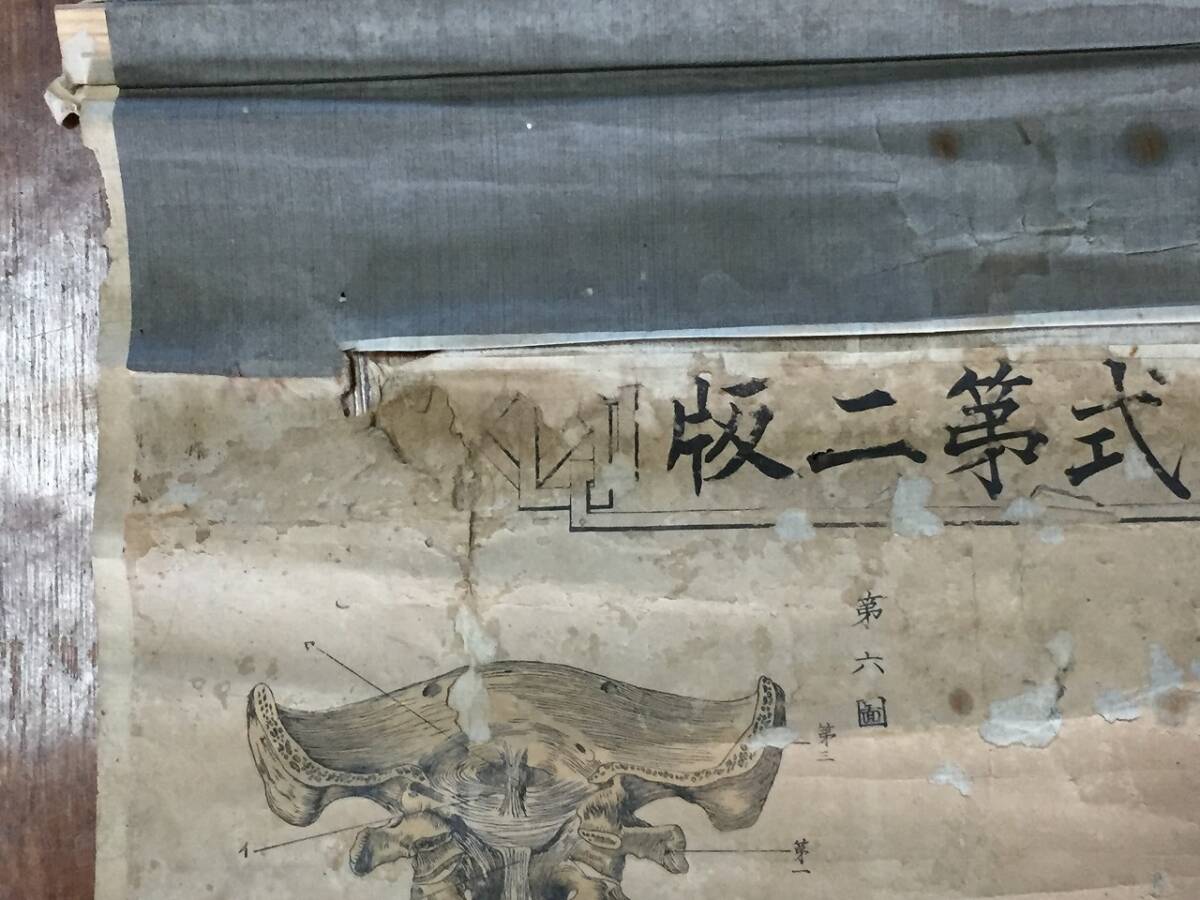 版二第式
第六圖
第二
イ
第一